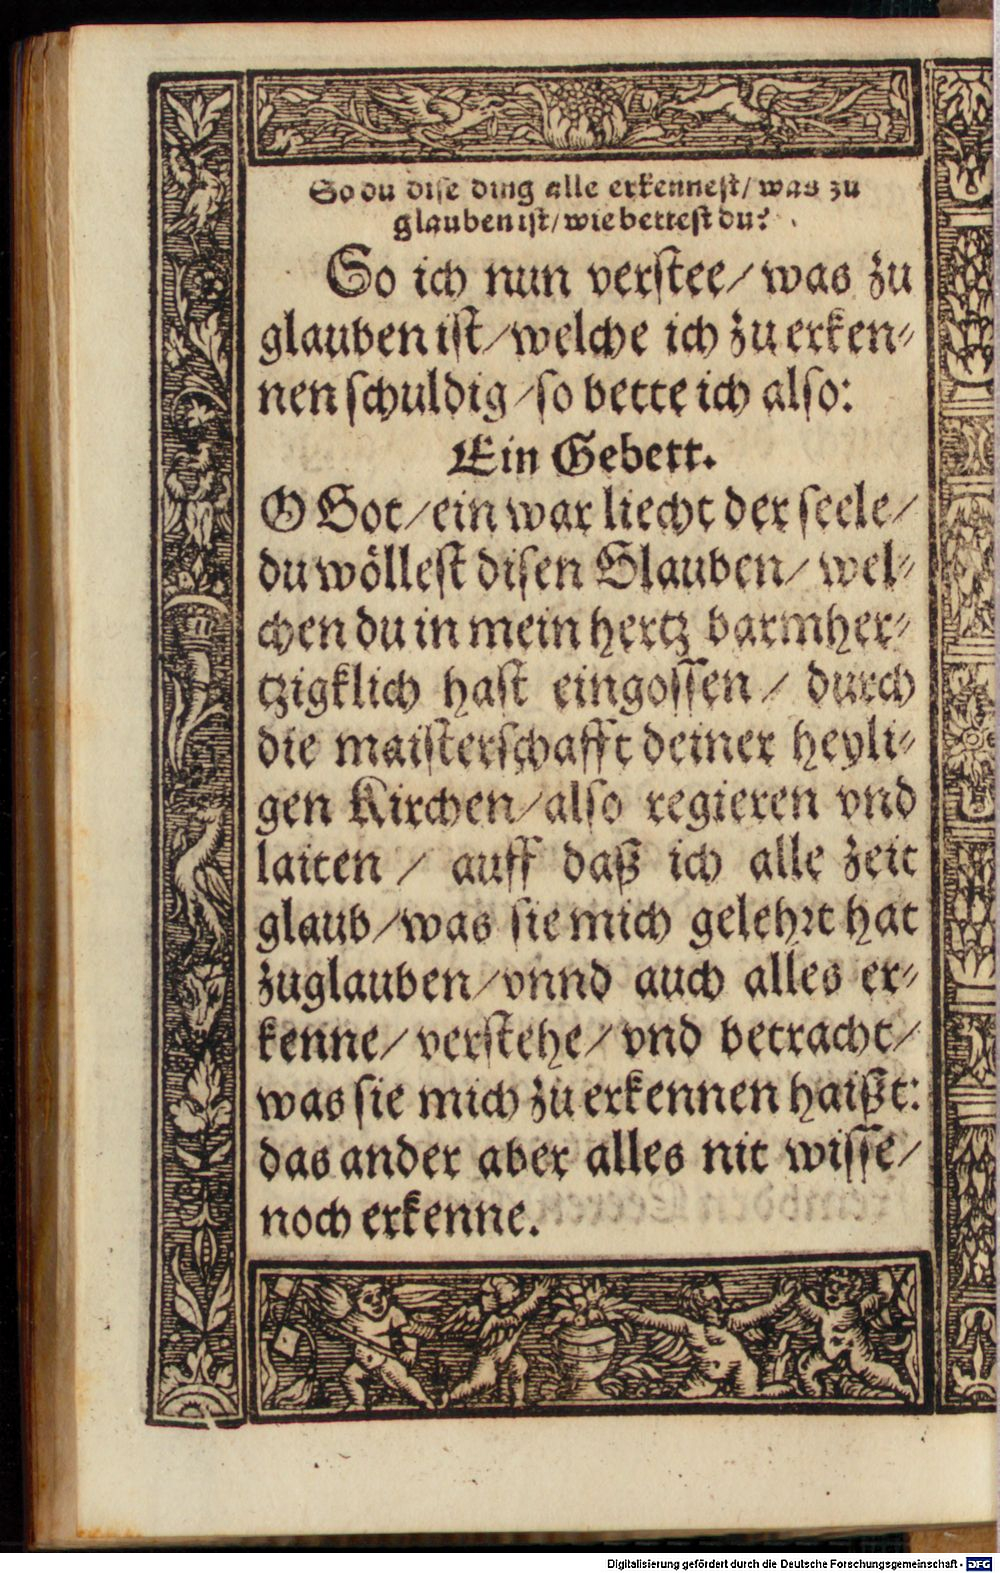 So du dise ding alle erkennest/ was zu
glauben ist/ wie bettest du?
So ich nun verstee/ was zu
glauben ist/ welche ich zu erken⸗
nen schuldig/ so bette ich also:
Ein Gebett.
O Got/ ein war liecht der seele/
du wöllest disen Glauben/ wel⸗
chen du in mein hertz barmher⸗
tzigklich hast eingossen/ durch
die maisterschafft deiner heyli⸗
gen Kirchen/ also regieren vnd
laiten/ auff daß ich alle zeit
glaub/ was sie mich gelehrt hat
zuglauben/ vnnd auch alles er⸗
kenne/ verstehe/ vnd betracht/
was sie mich zu erkennen haißt:
das ander aber alles nit wisse/
noch erkenne.
Digitalisierung gefördert durch die Deutsche Forschungsgemeinschaft - DFG